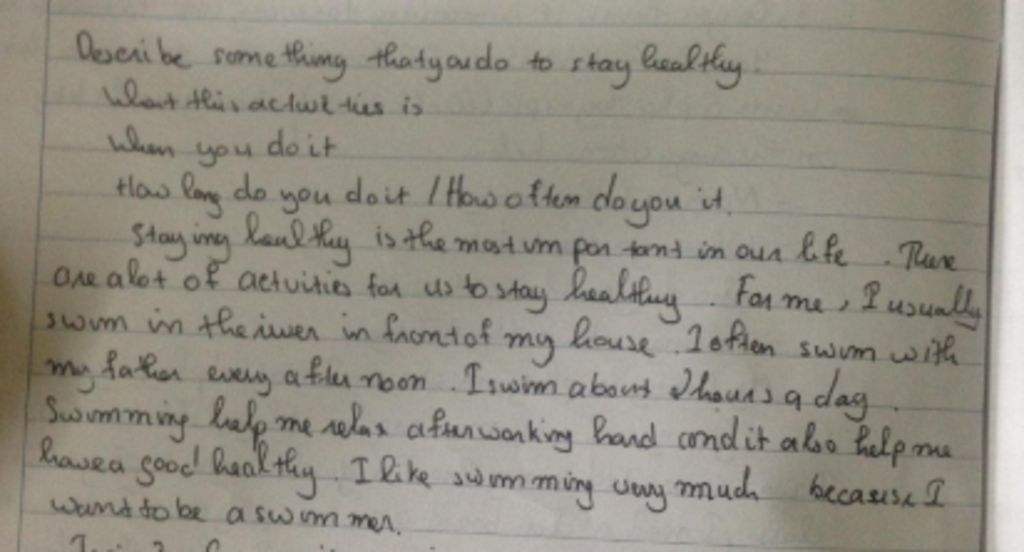 Describe something that you do to stay healthy.
What this activities is
When you do it
How long do you do it / How often do you it.
Staying healthy is the most important in our life. There
are a lot of activities for us to stay healthy. For me, I usually
swim in the river in front of my house. I often swim with
my father every afternoon. I swim about 2 hours a day.
Swimming help me relax after working hard and it also help me
have a good healthy. I like swimming very much because I
want to be a swimmer.